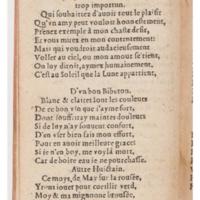 trop importun.
Qui souhaittez d'auoir tout le plaisir
Qu'vn amy peut vouloir honnestement,
Prenez exemple à mon chaste desir,
Et vous mirez en mon contentement:
Mais qui voudroit audacieusement
Voller au ciel, ou mon amour se tient,
On luy diroit, aymez humainement,
C'est au Soleil que la Lune appartient.
D'vn bon Biberon.
Blanc & clairet sont les couleurs
De ce bon vin que i'ayme fort,
Dont
Si de luy n'ay souuent confort,
D'en vser bien fais mon effort,
Pour en auoir meilleure grace:
Si ie n'en boy, me voylà mort,
Car de boire eau ie ne pourchasse.
Autre Huictain.
Ce moys de May sur la rousée,
Yrons iouer pour cueillir verd,
Moy & ma mignonne